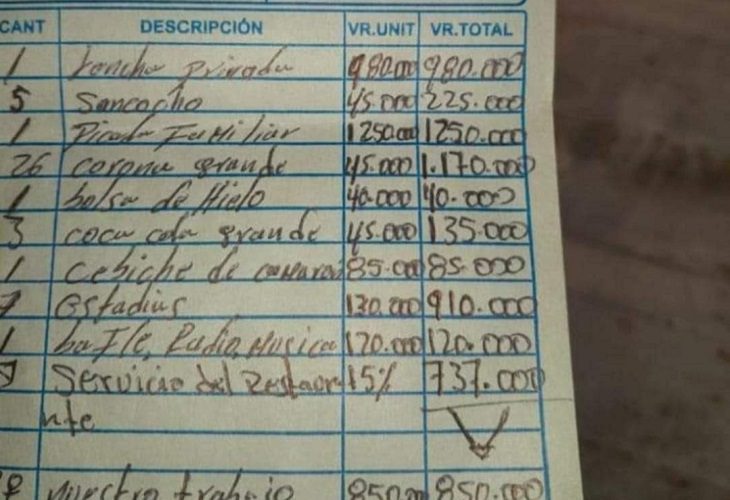 CANT DESCRIPCIÓN VR.UNIT VR.TOTAL
1 Lancha privada 980.000 980.000
5 Sancocho 45.000 225.000
1 Picada Familiar 1250.000 1250.000
26 corona grande 45.000 1.170.000
1 bolsa de Hielo 40.000 40.000
3 coca cola grande 45.000 135.000
1 cebiche de camaron 85.000 85.000
7 estadius 130.000 910.000
1 bafle, Radio, Musica 120.000 120.000
Servicio del Restaura 15% 737.000
nte
nuestro trabajo 850.000 850.000